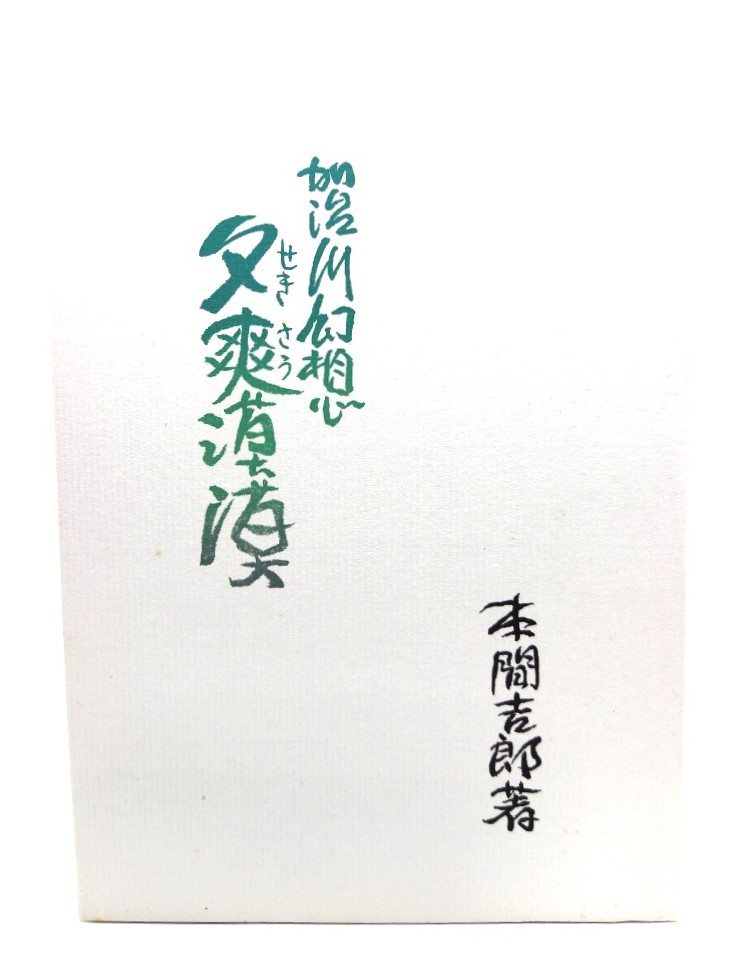 加治川幻想
夕爽漠漠
せきさう
本間吉郎著